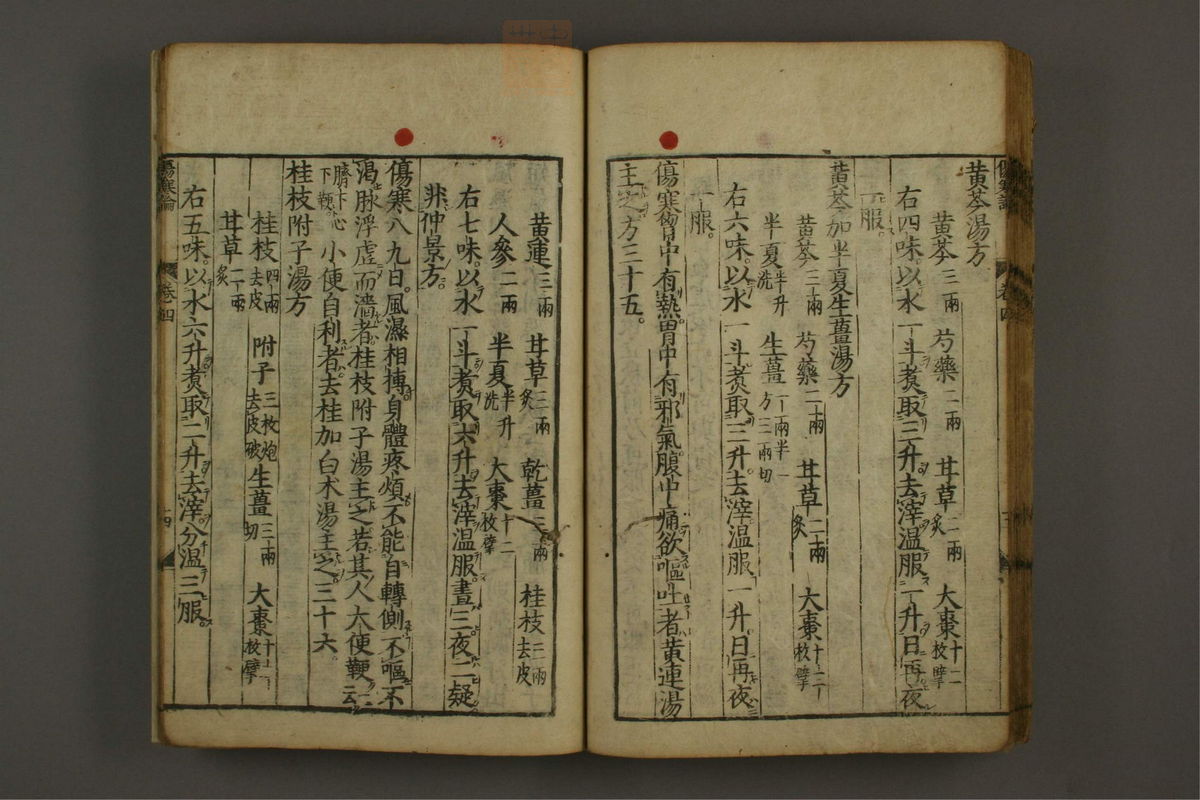 黄芩湯方
黄芩三兩 芍藥二兩 甘草二兩炙 大棗十二枚擘
右四味以水一斗煮取三升去滓温服一升日再夜
一服。
黄芩加半夏生薑湯方
黄芩三兩 芍藥二兩 甘草二兩炙 大棗十二枚擘
半夏半升洗 生薑一兩半一方三兩切
右六味以水一斗煮取三升去滓温服一升日再夜
一服。
傷寒胷中有熱胃中有邪氣腹中痛欲嘔吐者黄連湯
主之方三十五。
傷寒論 卷四
黄連三兩 甘草三兩炙 乾薑三兩 桂枝三兩去皮
人參二兩 半夏半升洗 大棗十二枚擘
右七味以水一斗煮取六升去滓温服晝三夜二疑
非仲景方。
傷寒八九日風濕相摶身體疼煩不能自轉側不嘔不
渴脉浮虚而濇者桂枝附子湯主之若其人大便鞕一云
臍下心下鞕小便自利者去桂加白术湯主之三十六
桂枝附子湯方
桂枝四兩去皮 附子三枚炮去皮破 生薑三兩切 大棗十二枚擘
甘草二兩炙
右五味以水六升煮取二升去滓分温三服
傷寒論 卷四 十四